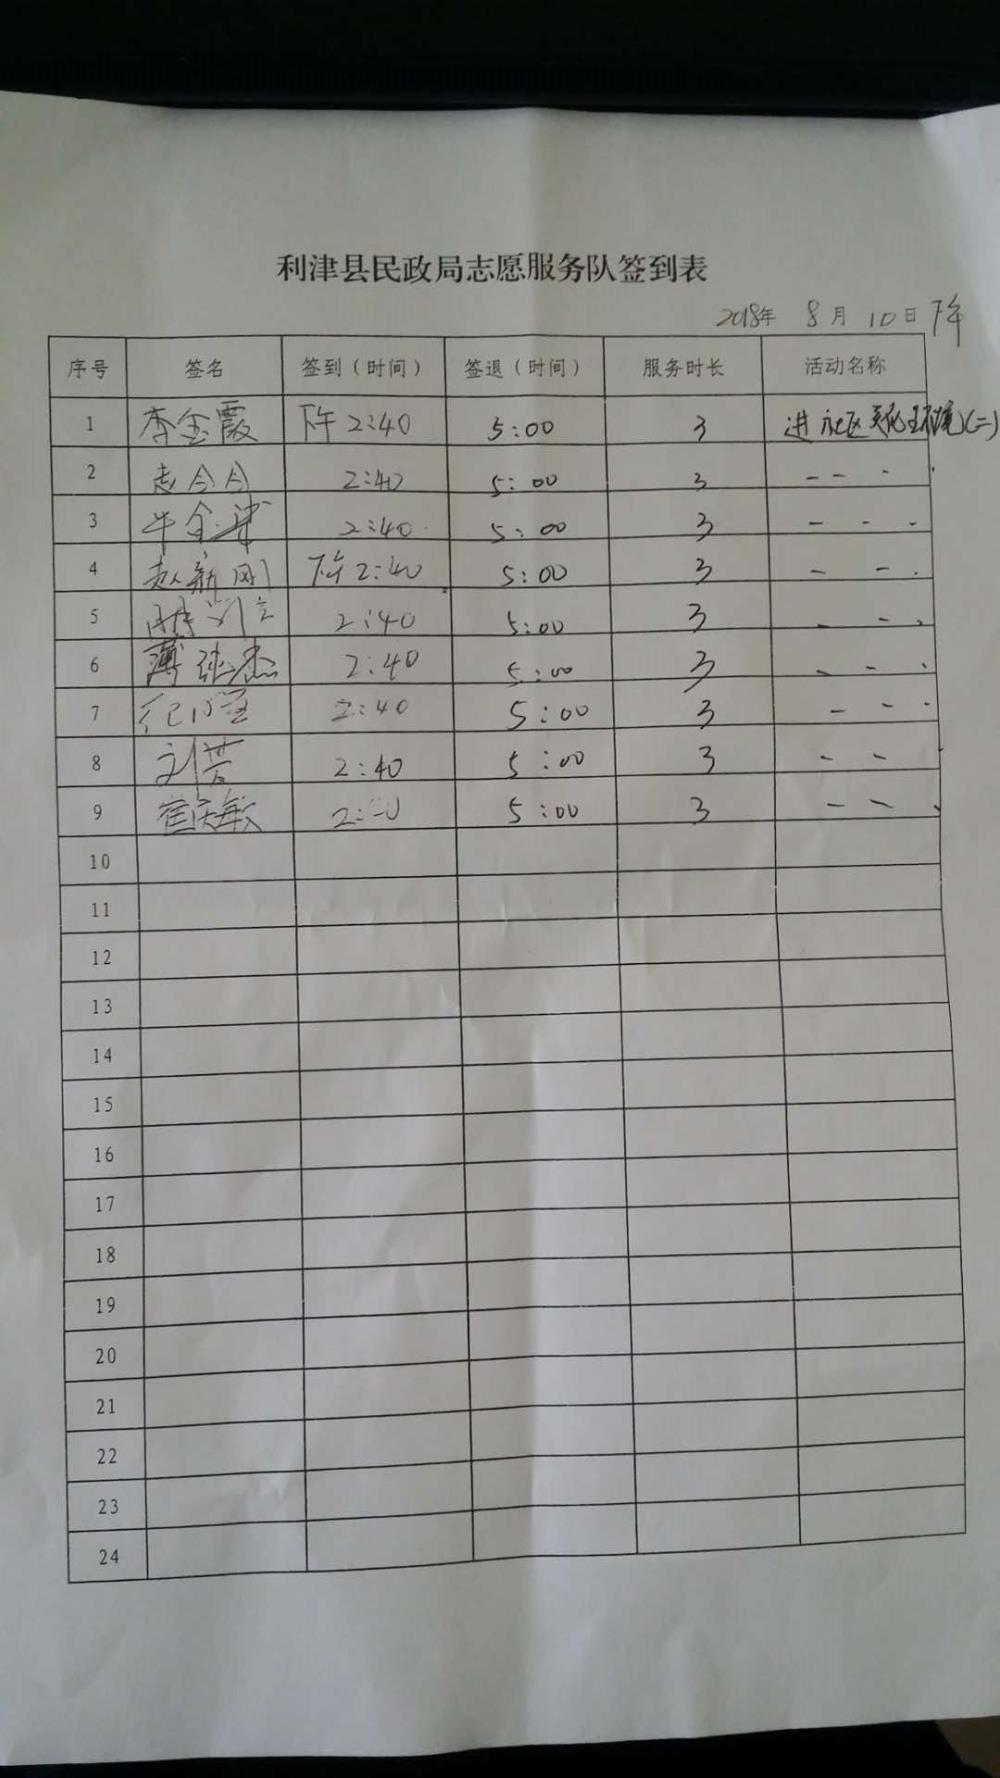 利津县民政局志愿服务队签到表
2018年 8月 10日 下午
序号 签名 签到（时间） 签退（时间） 服务时长 活动名称
1 李金霞 下午 2:40 5:00 3 进社区美化环境(二)
2 2:40 5:00 3 - - -
3 2:40 5:00 3 - - -
4 赵新刚 下午 2:40 5:00 3 - - -
5 2:40 5:00 3 - - -
6 薄 2:40 5:00 3 - - -
7 2:40 5:00 3 - - -
8 刘芳 2:40 5:00 3 - -
9 崔庆敏 5:00 3 - - -
10
11
12
13
14
15
16
17
18
19
20
21
22
23
24